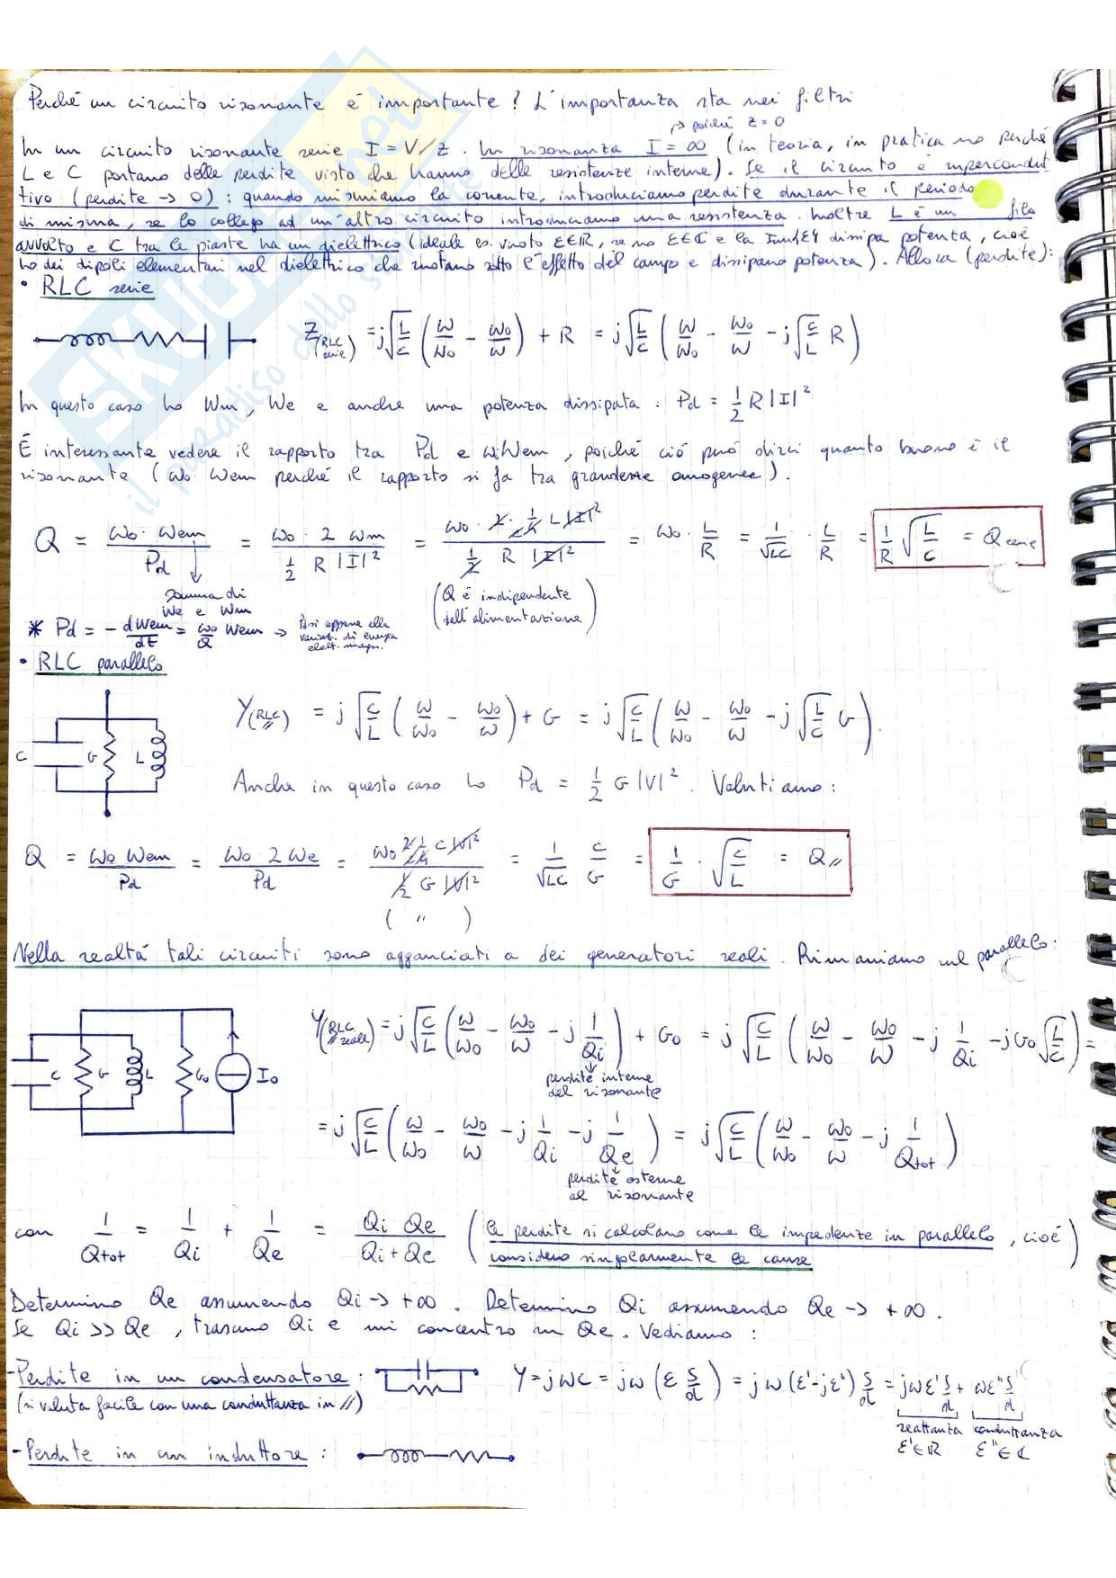 Perché un circuito risonante è importante? L'importanza sta nei filtri
↱ poiché Z = 0
In un circuito risonante serie I = V/Z. In risonanza I = ∞ (in teoria, in pratica no perché
L e C portano delle perdite visto che hanno delle resistenze interne). Se il circuito è supercondut
tivo (perdite → 0): quando misuriamo la corrente, introduciamo perdite durante il periodo
di misura, se lo collego ad un'altro circuito introduciamo una resistenza. Inoltre L è un filo
avvolto e C tra le piastre ha un dielettrico (ideale es. vuoto ε∈ℝ, se no ε∈ℂ e la Im{ε} dissipa potenza, cioè
ho dei dipoli elementari nel dielettrico che ruotano sotto l'effetto del campo e dissipano potenza). Allora (perdite):
• RLC serie
Z(RLC serie) = j√(L/C) (ω/ω₀ - ω₀/ω) + R = j√(L/C) (ω/ω₀ - ω₀/ω - j√(C/L) R)
In questo caso ho Wm, We e anche una potenza dissipata: Pd = 1/2 R |I|²
È interessante vedere il rapporto tra Pd e ω₀Wem, poiché ciò può dirci quanto buono è il
risonante (ω₀ Wem perché il rapporto si fa tra grandezze omogenee).
Q = ω₀ · Wem / Pd = ω₀ · 2 Wm / (1/2 R |I|²) = ω₀ · 2 · 1/4 L|I|² / (1/2 R |I|²) = ω₀ · L/R = 1/√LC · L/R = 1/R √(L/C) = Qserie
somma di
We e Wm
(Q è indipendente
dell'alimentazione)
* Pd = - dWem/dt = ω₀/Q Wem →
• RLC parallelo
Y(RLC //) = j√(C/L) (ω/ω₀ - ω₀/ω) + G = j√(C/L) (ω/ω₀ - ω₀/ω - j√(L/C) G).
C G L
Anche in questo caso ho Pd = 1/2 G |V|². Valutiamo:
Q = ω₀ Wem / Pd = ω₀ · 2 We / Pd = ω₀ 2 1/4 C|V|² / (1/2 G |V|²) = 1/√LC C/G = 1/G · √(C/L) = Q//
( " )
Nella realtà tali circuiti sono agganciati a dei generatori reali. Rimaniamo sul parallelo:
Y(RLC // reale) = j√(C/L) (ω/ω₀ - ω₀/ω - j 1/Qi) + G₀ = j√(C/L) (ω/ω₀ - ω₀/ω - j 1/Qi - jG₀√(L/C)) =
C G L G₀ I₀
perdite interne
del risonante
= j√(C/L) (ω/ω₀ - ω₀/ω - j 1/Qi - j 1/Qe) = j√(C/L) (ω/ω₀ - ω₀/ω - j 1/Qtot)
perdite esterne
al risonante
con 1/Qtot = 1/Qi + 1/Qe = Qi Qe / (Qi + Qe) (le perdite si calcolano come le impedenze in parallelo, cioè
considero singolarmente le cause)
Determino Qe assumendo Qi → +∞. Determino Qi assumendo Qe → +∞.
Se Qi >> Qe, trascuro Qi e mi concentro su Qe. Vediamo:
- Perdite in un condensatore:
Y = jωC = jω (ε S/d) = jω (ε' - jε") S/d = jωε' S/d + ωε" S/d
(si valuta facile con una conduttanza in //)
reattanza conduttanza
ε' ∈ ℝ ε" ∈ ℂ
- Perdite in un induttore: